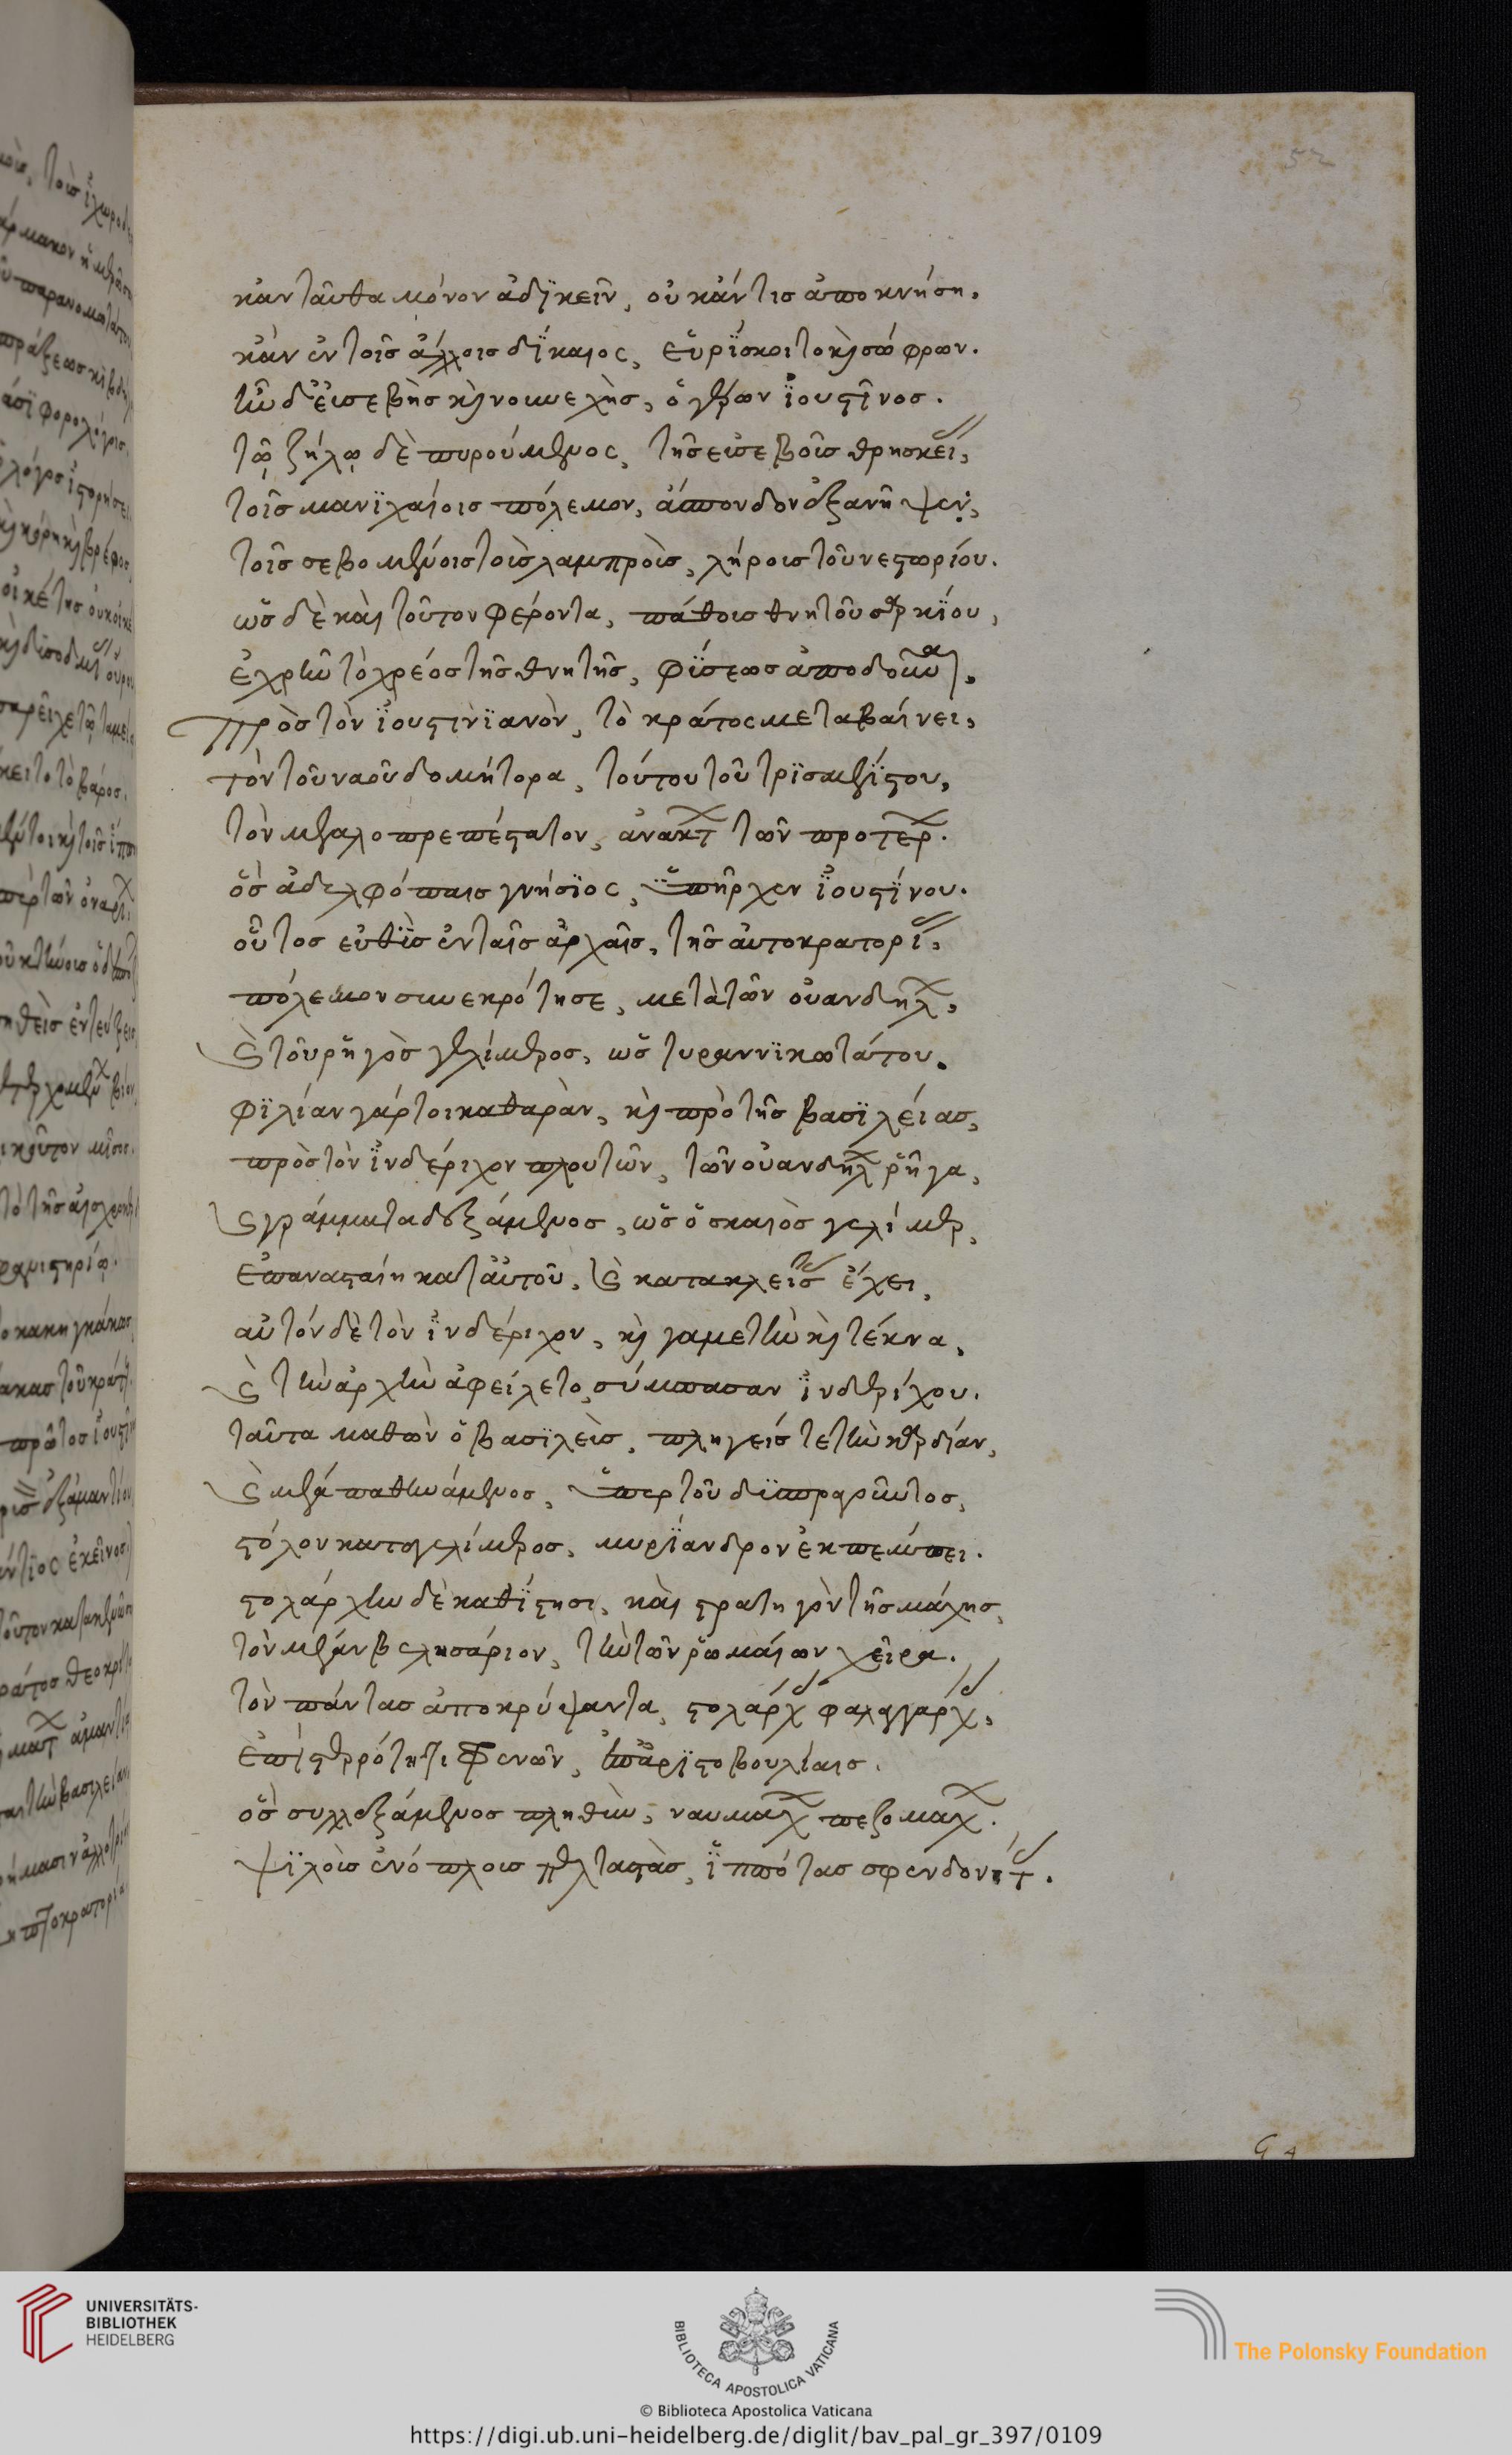 52
κἀν ταῦτα μόνον ἀδϊκεῖν, οὐκ ἄν τις ἀποκνήση.
κἀν ἐν τοῖς ἄλλοις δίκαιος, εὑρΐσκοιτο κὶ σώφρων.
ἦν δ' εὐσεβὴς κὶ νουνεχὴς, ὁ γέρων ϊουστῖνος.
τῷ ζήλῳ δὲ πυρούμενος, τῆς εὐσεβοῦς θρησκεί,
τοῖς μανϊχαίοις πόλεμον, ἄσπονδον ἐξανῆψεν,
τοῖς σεβομένοις τοὺς λαμπροὺς, λήροις τοῦ νεστορίου.
ὡς δὲ καὶ τοῦτον φέροντα, πάθοις θνητοῦ σαρκίου,
ἐχρῆν τὸ χρέος τῆς θνητῆς, φύσεως ἀποδοῦναι.
Πρὸς τὸν ϊουστινϊανὸν, τὸ κράτος μεταβαίνει,
τὸν τοῦ ναοῦ δομήτορα, τούτου τοῦ τρϊσμεγίστου,
τὸν μεγαλοπρεπέστατον, ἀνακτ τῶν προτερ.
ὃς ἀδελφόπαις γνήσϊος, ὑπῆρχεν ϊουστίνου.
οὗτος εὐθὺς ἐν ταῖς ἀρχαῖς, τῆς αὐτοκρατορί,
πόλεμον συνεκρότησε, μετὰ τῶν οὐανδηλ,
ϛ τοῦ ῥηγὸς γελίμερος, ὡς τυραννϊκωτάτου.
φϊλίαν γάρ τοι καθαρὰν, κὶ πρὸ τῆς βασϊλείας,
πρὸς τὸν ϊνδέριχον πλουτῶν, τῶν οὐανδηλ ῥῆγα,
ϛ γράμματα δεξάμενος, ὡς ὁ σκαιὸς γελίμερ,
ἐπανασταίη κατ' αὐτοῦ, ϛ κατακλείσ ἔχει,
αὐτόν δὲ τὸν ϊνδέριχον, κὶ γαμετὴν κὶ τέκνα,
ϛ τὴν ἀρχὴν ἀφείλετο, σύμπασαν ϊνδερίχου.
ταῦτα μαθὼν ὁ βασϊλεὺς, πληγείς τε τὴν καρδίαν,
ϛ μεγάπαθηνάμενος, ὑπερ τοῦ δϊαπραχθέντος,
στόλον κατα γελίμερος, μυρϊάνδρον ἐκπέμπει.
στολάρχην δὲ καθίστησι, καὶ στρατηγὸν τῆς μάχης,
τὸν μέγαν βελησάριον, τὴν τῶν ῥωμαίων χεῖρα.
τὸν πάντας ἀποκρύψαντα, στολάρχ φαλαγγάρχ,
ἐπὶ στερρότητι φρενῶν, ἐπ' ἀρϊστοβουλίαις.
ὃς συλλεξάμενος πληθὺν, ναυμαχ πεζομαχ.
ψϊλοὺς ἐνόπλοις πελταστὰς, ϊππότας σφενδονήτ.
UNIVERSITÄTS-
BIBLIOTHEK
HEIDELBERG
BIBLIOTECA APOSTOLICA VATICANA
The Polonsky Foundation
© Biblioteca Apostolica Vaticana
https://digi.ub.uni-heidelberg.de/diglit/bav_pal_gr_397/0109